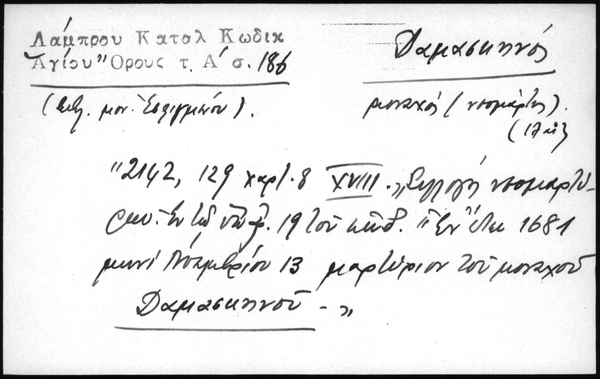 Λάμπρου Καταλ Κωδικ
Ἁγίου Ὄρους τ. Α΄ σ. 186
Δαμασκηνός
(Βιβλ. μον. Ἐσφιγμένου).
μοναχός (νεομάρτυς).
"2142, 129 χαρτ. 8 XVIII. „Συλλογὴ νεομαρτύ-
ρων. Ἐν τῷ 19 τοῦ "Ἐν ἔτει 1681
μηνὶ Νοεμβρίου 13 μαρτύριον τοῦ μοναχοῦ
Δαμασκηνοῦ - „